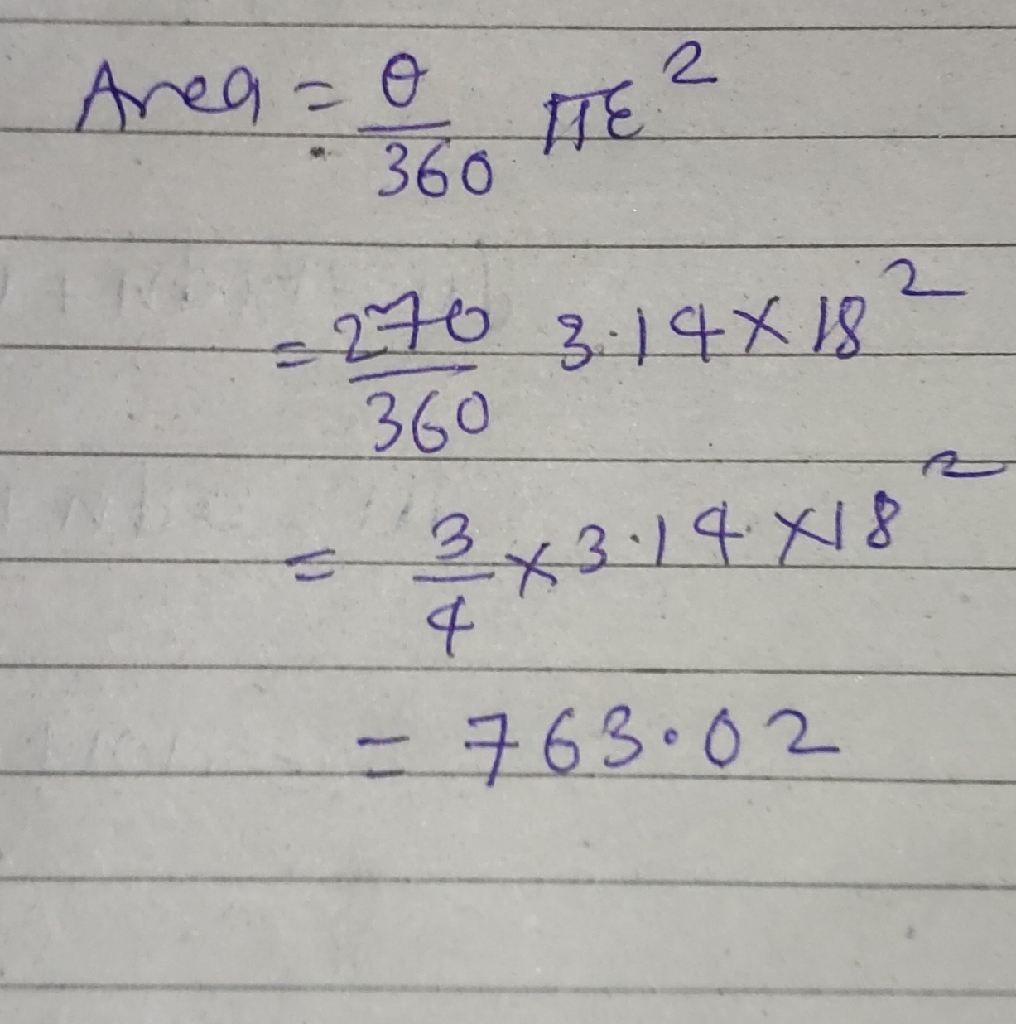 Area = θ/360 πr²
= 270/360 3.14 × 18²
= 3/4 × 3.14 × 18²
= 763.02